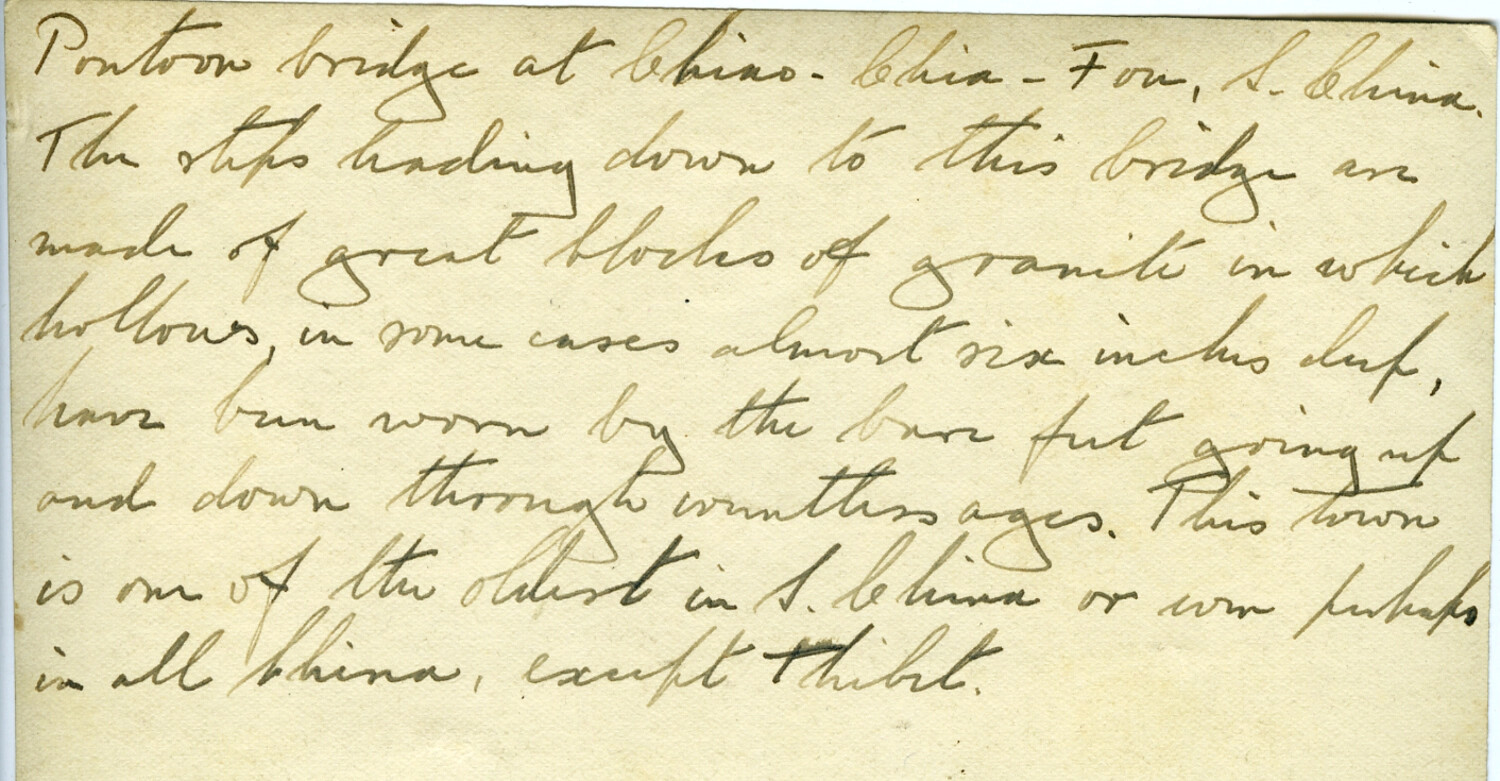 Pontoon bridge at Chiao-Chia-Fou, S. China.
The steps leading down to this bridge are
made of great blocks of granite in which
hollows, in some cases almost six inches deep,
have been worn by the bare feet going up
and down through countless ages. This town
is one of the oldest in S. China or even perhaps
in all China, except Thibet.